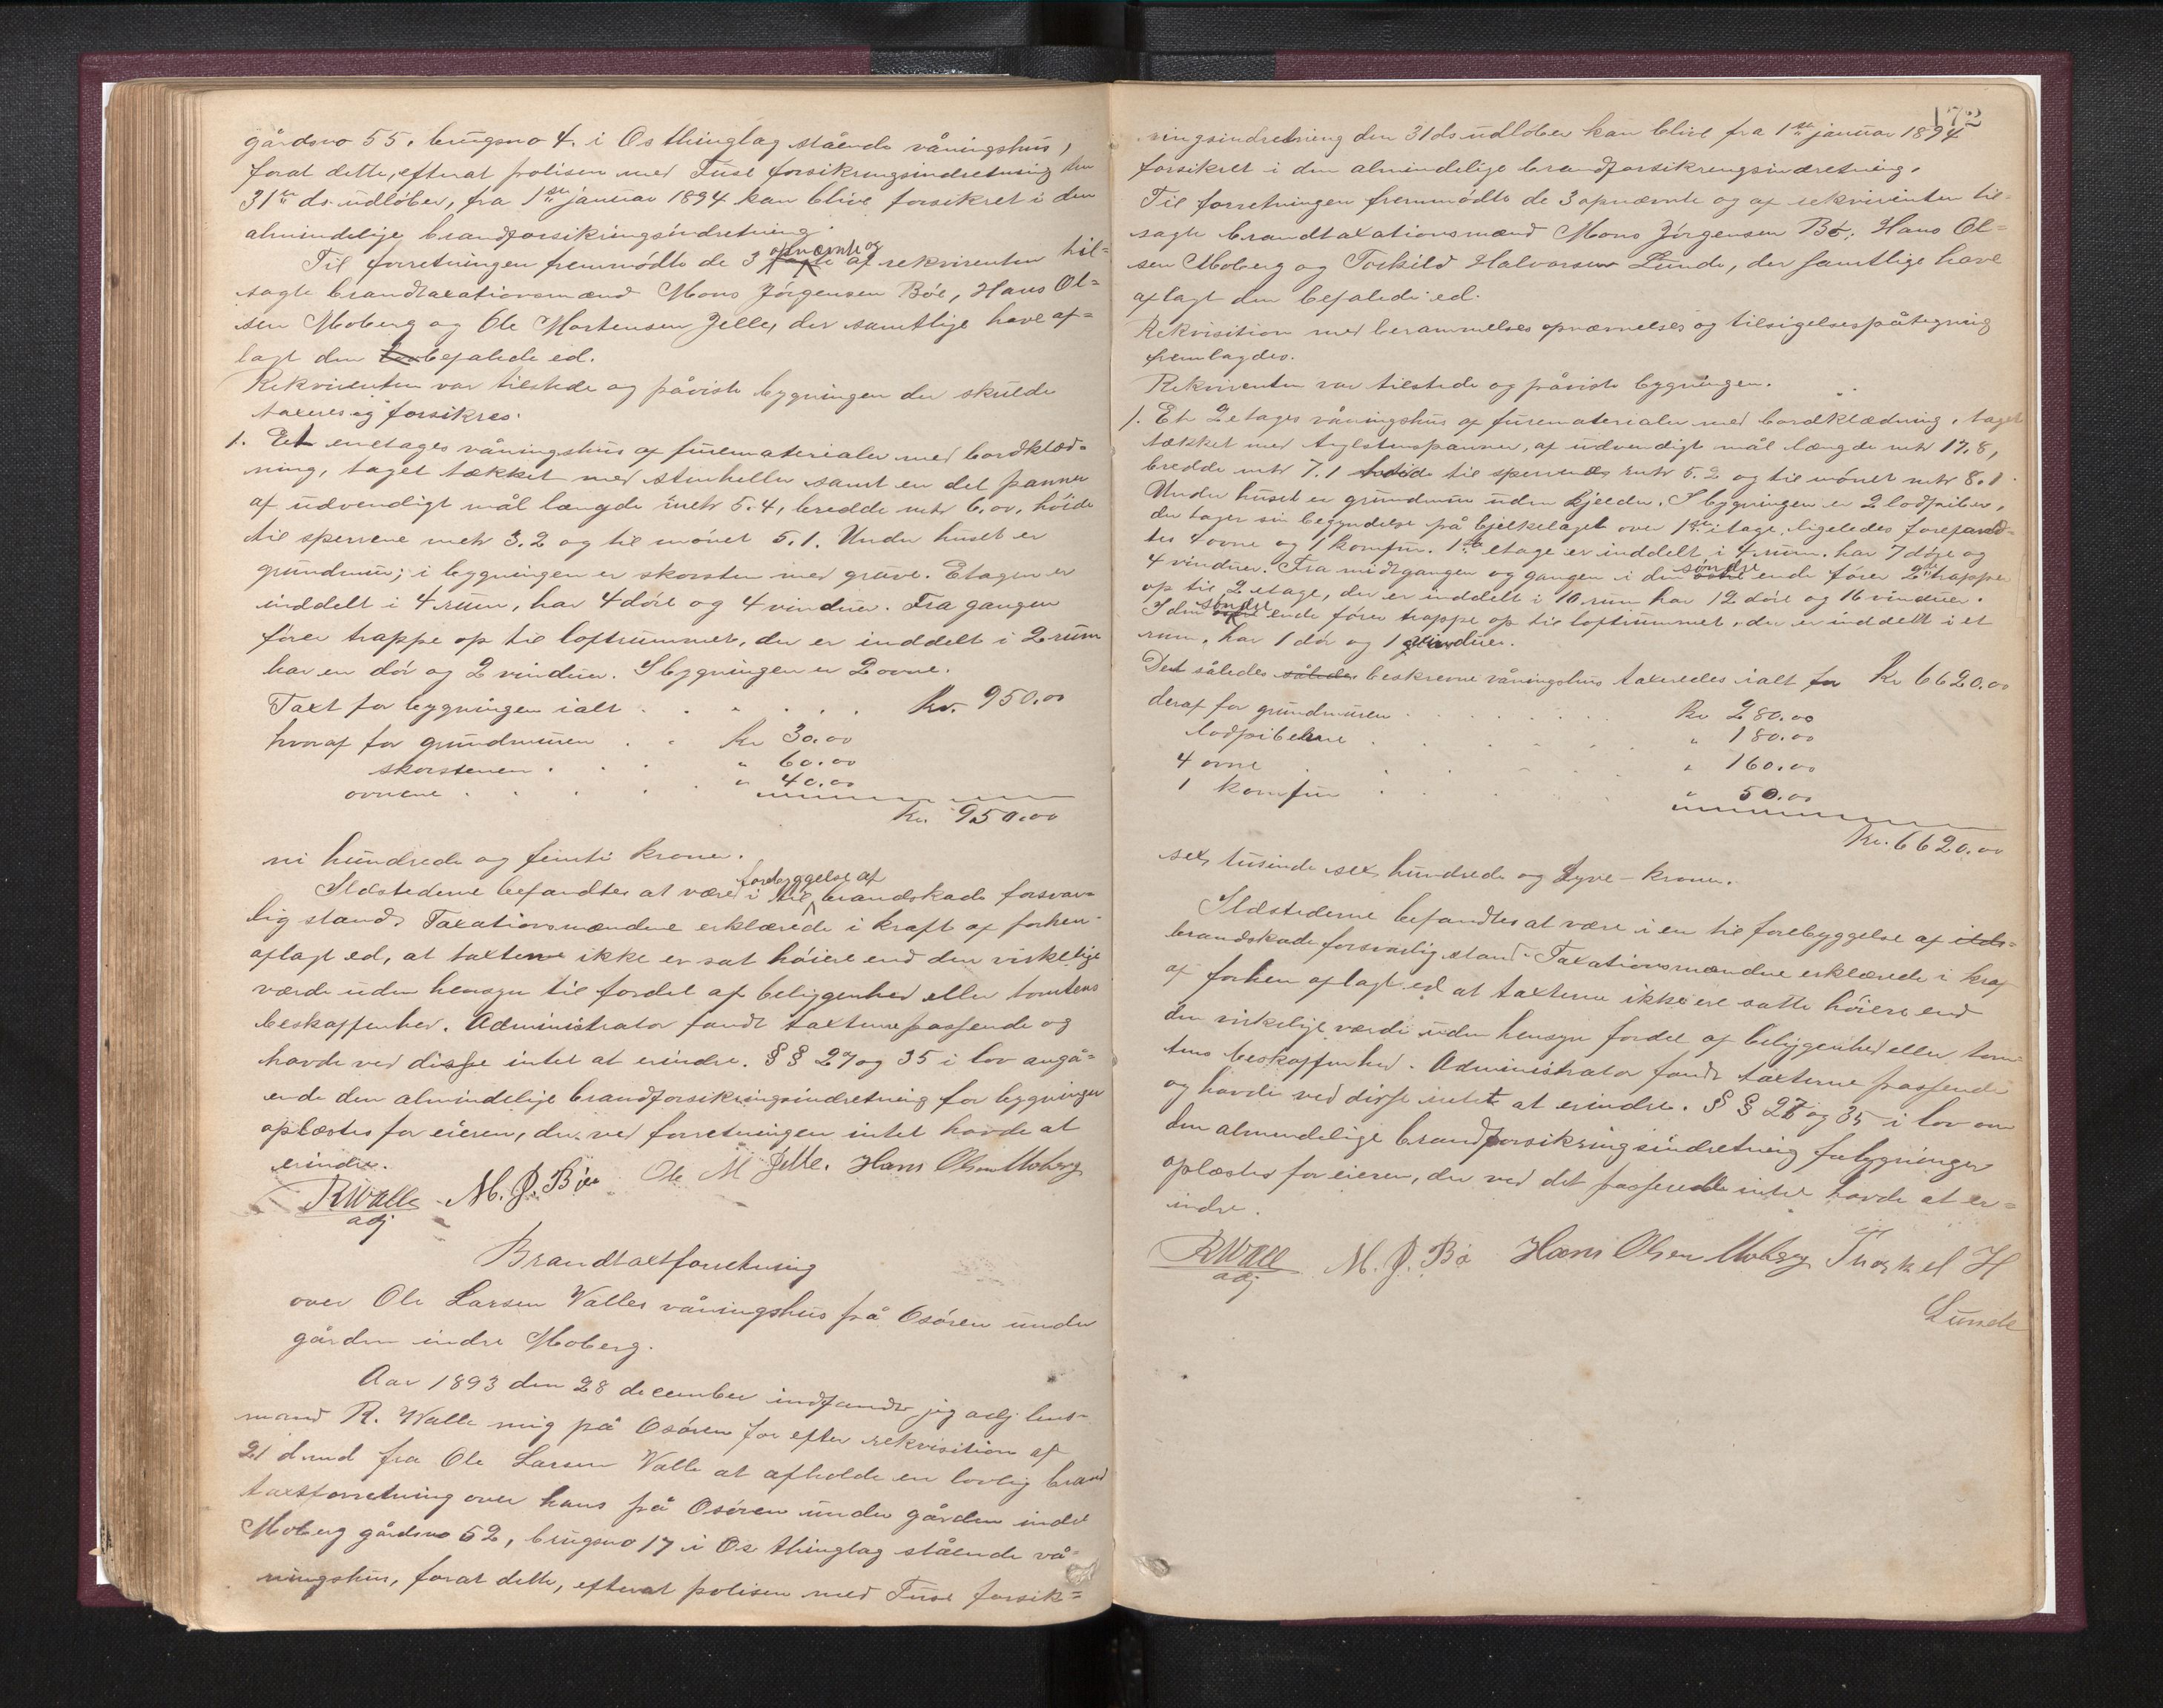 gårdsno 55. brugsno 4. i Os thinglag stående våningshus,
forat dette, efterat polisen med Tuse forsikringsindretning den
31te ds udlöber, fra 1ste januar 1894 kan blive forsikret i den
almindelige brandforsikringsindretning.
Til forretningen fremmödte de 3 opnævnte og af rekvirenten til-
sagte brandtaxationsmænd Mons Jörgensen Böe, Hans Ol-
sen Moberg og Ole Mortensen Jelle, der samtlige have af-
lagt den befalede ed.
Rekvirenten var tilstede og påviste bygningen der skulde
taxeres og forsikres.
1. Et enetages våningshus af furematerialer med bordklæd-
ning, taget tækket med stenheller samt en del panner
af udvendigt mål længde metr 5.4, bredde mtr 6.00, höide
til sperrene metr 3.2 og til mönet 5.1. Under huset er
grundmur; i bygningen er skorsten med gruve. Etagen er
inddelt i 4 rum, har 4 döre og 4 vinduer. Fra gangen
förer trappe op til loftrummet, der er inddelt i 2 rum
har en dör og 2 vinduer. I bygningen er 2 ovne.
Taxt for bygningen ialt . . . . . . kr. 950.00
hvoraf for grundmuren . . kr 30.00
skorstenen . . . " 60.00
ovnene . . . . " 40.00
Kr. 950.00
ni hundrede og femti kroner.
Ildstederne befandtes at være i til forebyggelse af brandskade forsvar-
lig stand. Taxationsmændene erklærede i kraft af forhen
aflagt ed, at taxterne ikke er sat höiere end den virkelige
værde uden hensyn til fordel af beliggenhed eller tomtens
beskaffenhed. Administrator fandt taxterne passende og
havde ved disse intet at erindre. §§ 27 og 35 i lov angå-
ende den almindelige brandforsikringsindretning for bygninger
oplæstes for eieren, der ved forretningen intet havde at
erindre.
RWalle M. J. Böe Ole M Jelle. Hans Olsen Moberg
adj
Brandtaxtforretning
over Ole Larsen Valles våningshus på Osören under
gården indre Moberg.
Aar 1893 den 28 december indfandt jeg adj lens-
mand R. Walle mig på Osören for efter rekvisition af
21 d.md fra Ole Larsen Valle at afholde en lovlig brand
taxtforretning over hans på Osören under gården indre
Moberg gårdsno 52, brugsno 17 i Os thinglag stående vå-
ningshus, forat dette, efterat polisen med Tuse forsik-
172
ringsindretning den 31 ds udlöber kan blive fra 1ste januar 1894
forsikret i den almindelige brandforsikringsindretning.
Til forretningen fremmödte de 3 opnævnte og af rekvirenten til-
sagte brandtaxationsmænd Mons Jörgensen Bö, Hans Ol-
sen Moberg og Torkild Halvorsen Lunde, der samtlige have
aflagt den befalede ed.
Rekvisition med berammelses opnævnelses og tilsigelsespåtegning
fremlagdes.
Rekvirenten var tilstede og påviste bygningen.
1. Et 2 etages våningshus af furematerialer med bordklædning, taget
tækket med teglstenspanner, af udvendigt mål længde mtr 17.8,
bredde mtr 7.1 höide til sperrende mtr 5.2 og til mönet mtr 8.1
Under huset er grundmur uden kjelder. I bygningen er 2 lodpiber,
der tager sin begyndelse på bjelkelaget over 1ste etage, ligeledes forefand-
tes 4 ovne og 1 komfur. 1ste etage er inddelt i 4 rum. har 7 döre og
4 vinduer. Fra midtgangen og gangen i den söndre ende förer 2de trapper
op til 2 etage, der er inddelt i 10 rum har 12 döre og 16 vinduer.
I den söndre ende förer trappe op til loftrummet, der er inddelt i et
rum, har 1 dör og 1 vinduer.
Det således således beskrevne våningshus taxeredes ialt for Kr 6620.00
deraf for grundmuren . . . . . Kr 280.00
lodpiberne . . . . . " 180.00
4 ovne . . . . . " 160.00
1 komfur . . . . " 50.00
Kr. 6620.00
sex tusinde sex hundrede og tyve kroner.
Ildstederne befandtes at være i en til forebyggelse af ilds-
brandskade forsvarlig stand. Taxationsmændene erklærede i kraf
af forhen aflagt ed at taxterne ikke ere satte höiere end
den virkelige værdi uden hensyn fordel af beliggenhed eller tom-
tens beskaffenhed. Administrator fandt taxterne passende
og havde ved disse intet at erindre. §§ 27 og 35 i lov om
den almindelige brandforsikringsindretning for bygninger
oplæstes for eieren, der ved det passerede intet havde at er-
indre.
RWalle M. J. Bö Hans Olsen Moberg Thorkel H
adj
Lunde